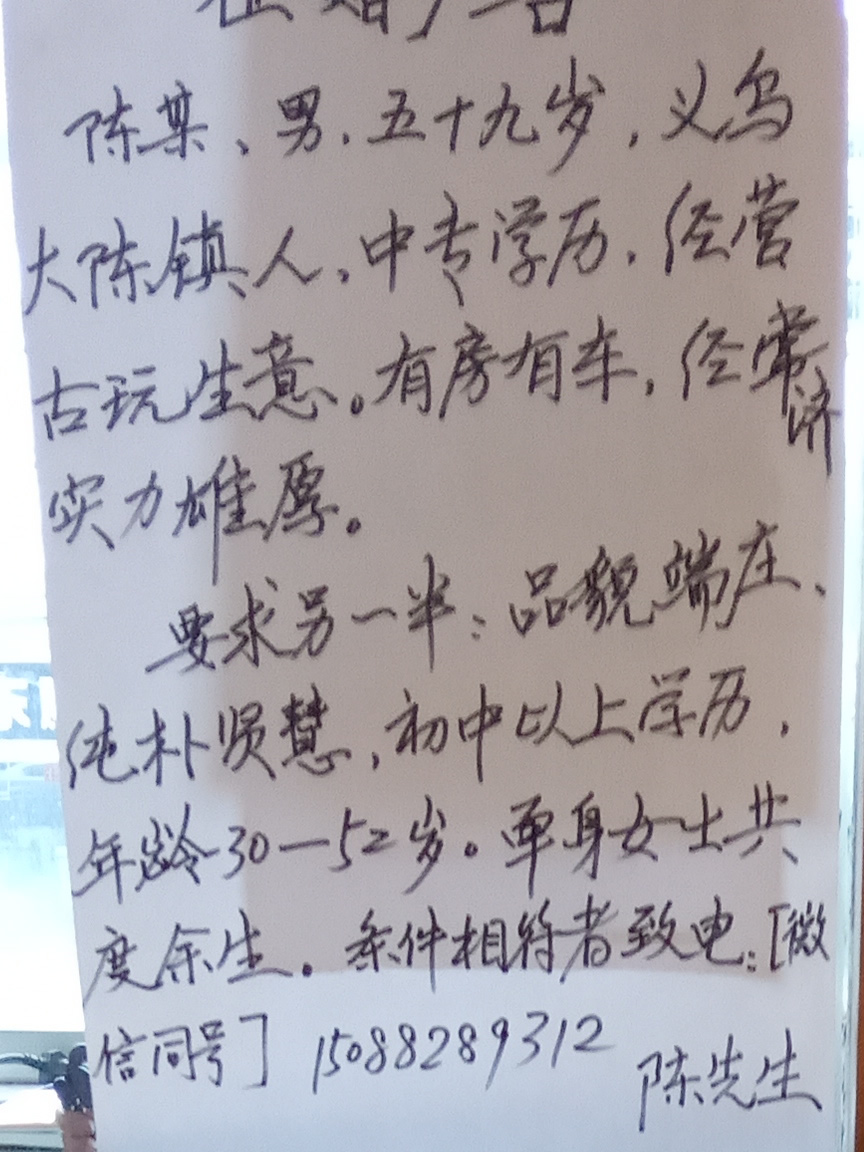 陈某、男，五十九岁，义乌
大陈镇人，中专学历，经营
古玩生意。有房有车，经济
实力雄厚。
要求另一半：品貌端庄、
纯朴贤慧，初中以上学历，
年龄30—52岁。单身女士共
度余生。条件相符者致电：[微
信同号] 15088289312
陈先生